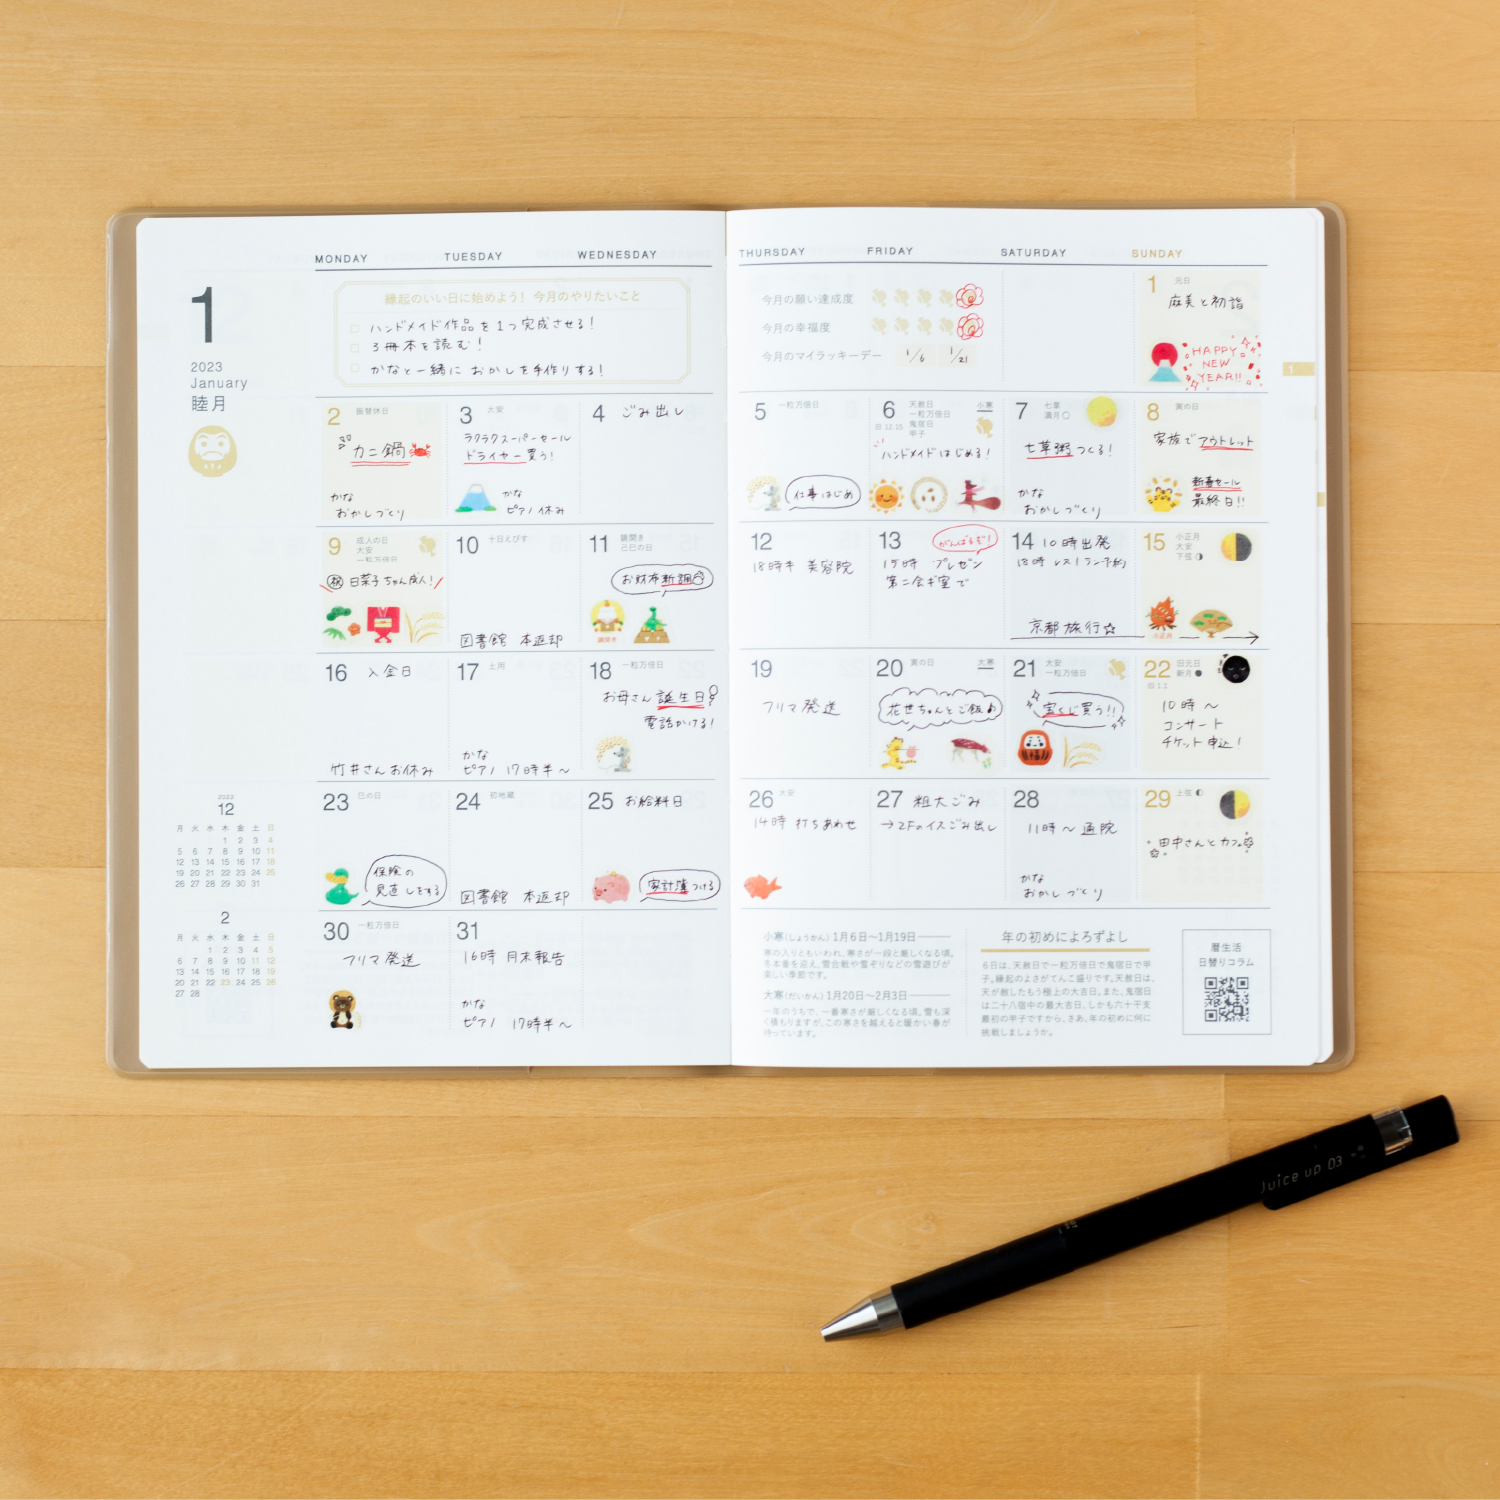 1
2023
January
睦月
MONDAY
TUESDAY
WEDNESDAY
THURSDAY
FRIDAY
SATURDAY
SUNDAY
縁起のいい日に始めよう! 今月のやりたいこと
ハンドメイド作品を1つ完成させる!
3冊本を読む!
かなと一緒に おかしを手作りする!
今月の願い達成度
今月の幸福度
今月のマイラッキーデー 1/6 1/21
1 元日
麻美と初詣
HAPPY
NEW
YEAR!!
2 振替休日
カニ鍋
かな
おかしづくり
3 大安
ラクラクスーパーセール
ドライヤー買う!
かな
ピアノ休み
4 ごみ出し
5 一粒万倍日
仕事はじめ
6 天赦日 小寒
一粒万倍日
旧12.15 鬼宿日
甲子
ハンドメイドはじめる!
7 七草
満月○
七草粥つくる!
かな
おかしづくり
8 寅の日
家族でアウトレット
新春セール
最終日!!
9 成人の日
大安
一粒万倍日
祝 日菜子ちゃん成人!
10 十日えびす
図書館 本返却
11 鏡開き
己巳の日
お財布新調
鏡開き
12
18時半 美容院
13 がんばるぞ!
15時 プレゼン
第二会ギ室で
14 10時出発
18時 レストラン予約
京都旅行☆
15 小正月
大安
下弦
小正月
16 入金日
竹井さんお休み
17 土用
かな
ピアノ 17時半〜
18 一粒万倍日
お母さん誕生日
電話かける!
19
フリマ発送
20 寅の日 大寒
花世ちゃんとご飯♪
21 大安
一粒万倍日
宝くじ買う!!
22 旧元日
新月●
旧1.1
10時〜
コンサート
チケット申込!
23 巳の日
保険の
見直しをする
24 初地蔵
図書館 本返却
25 お給料日
家計簿つける
26 大安
14時 打ちあわせ
27 粗大ごみ
→2Fのイスごみ出し
28
11時〜通院
かな
おかしづくり
29 上弦
田中さんとカフェ
30 一粒万倍日
フリマ発送
31
16時 月末報告
かな
ピアノ 17時半〜
2022
12
月 火 水 木 金 土 日
1 2 3 4
5 6 7 8 9 10 11
12 13 14 15 16 17 18
19 20 21 22 23 24 25
26 27 28 29 30 31
2
月 火 水 木 金 土 日
1 2 3 4 5
6 7 8 9 10 11 12
13 14 15 16 17 18 19
20 21 22 23 24 25 26
27 28
小寒(しょうかん)1月6日〜1月19日
寒の入りともいわれ、寒さが一段と厳しくなる頃。
冬本番を迎え、雪合戦や雪ぞりなどの雪遊びが
楽しい季節です。
大寒(だいかん)1月20日〜2月3日
一年のうちで、一番寒さが厳しくなる頃。雪も深
く積もりますが、この寒さを越えると暖かい春が
待っています。
年の初めによろずよし
6日は、天赦日で一粒万倍日で鬼宿日で甲
子。縁起のよさがてんこ盛りです。天赦日は、
天が赦したもう極上の大吉日。また、鬼宿日
は二十八宿中の最大吉日、しかも六十干支
最初の甲子ですから、さあ、年の初めに何に
挑戦しましょうか。
暦生活
日替りコラム
1
Juice up 03